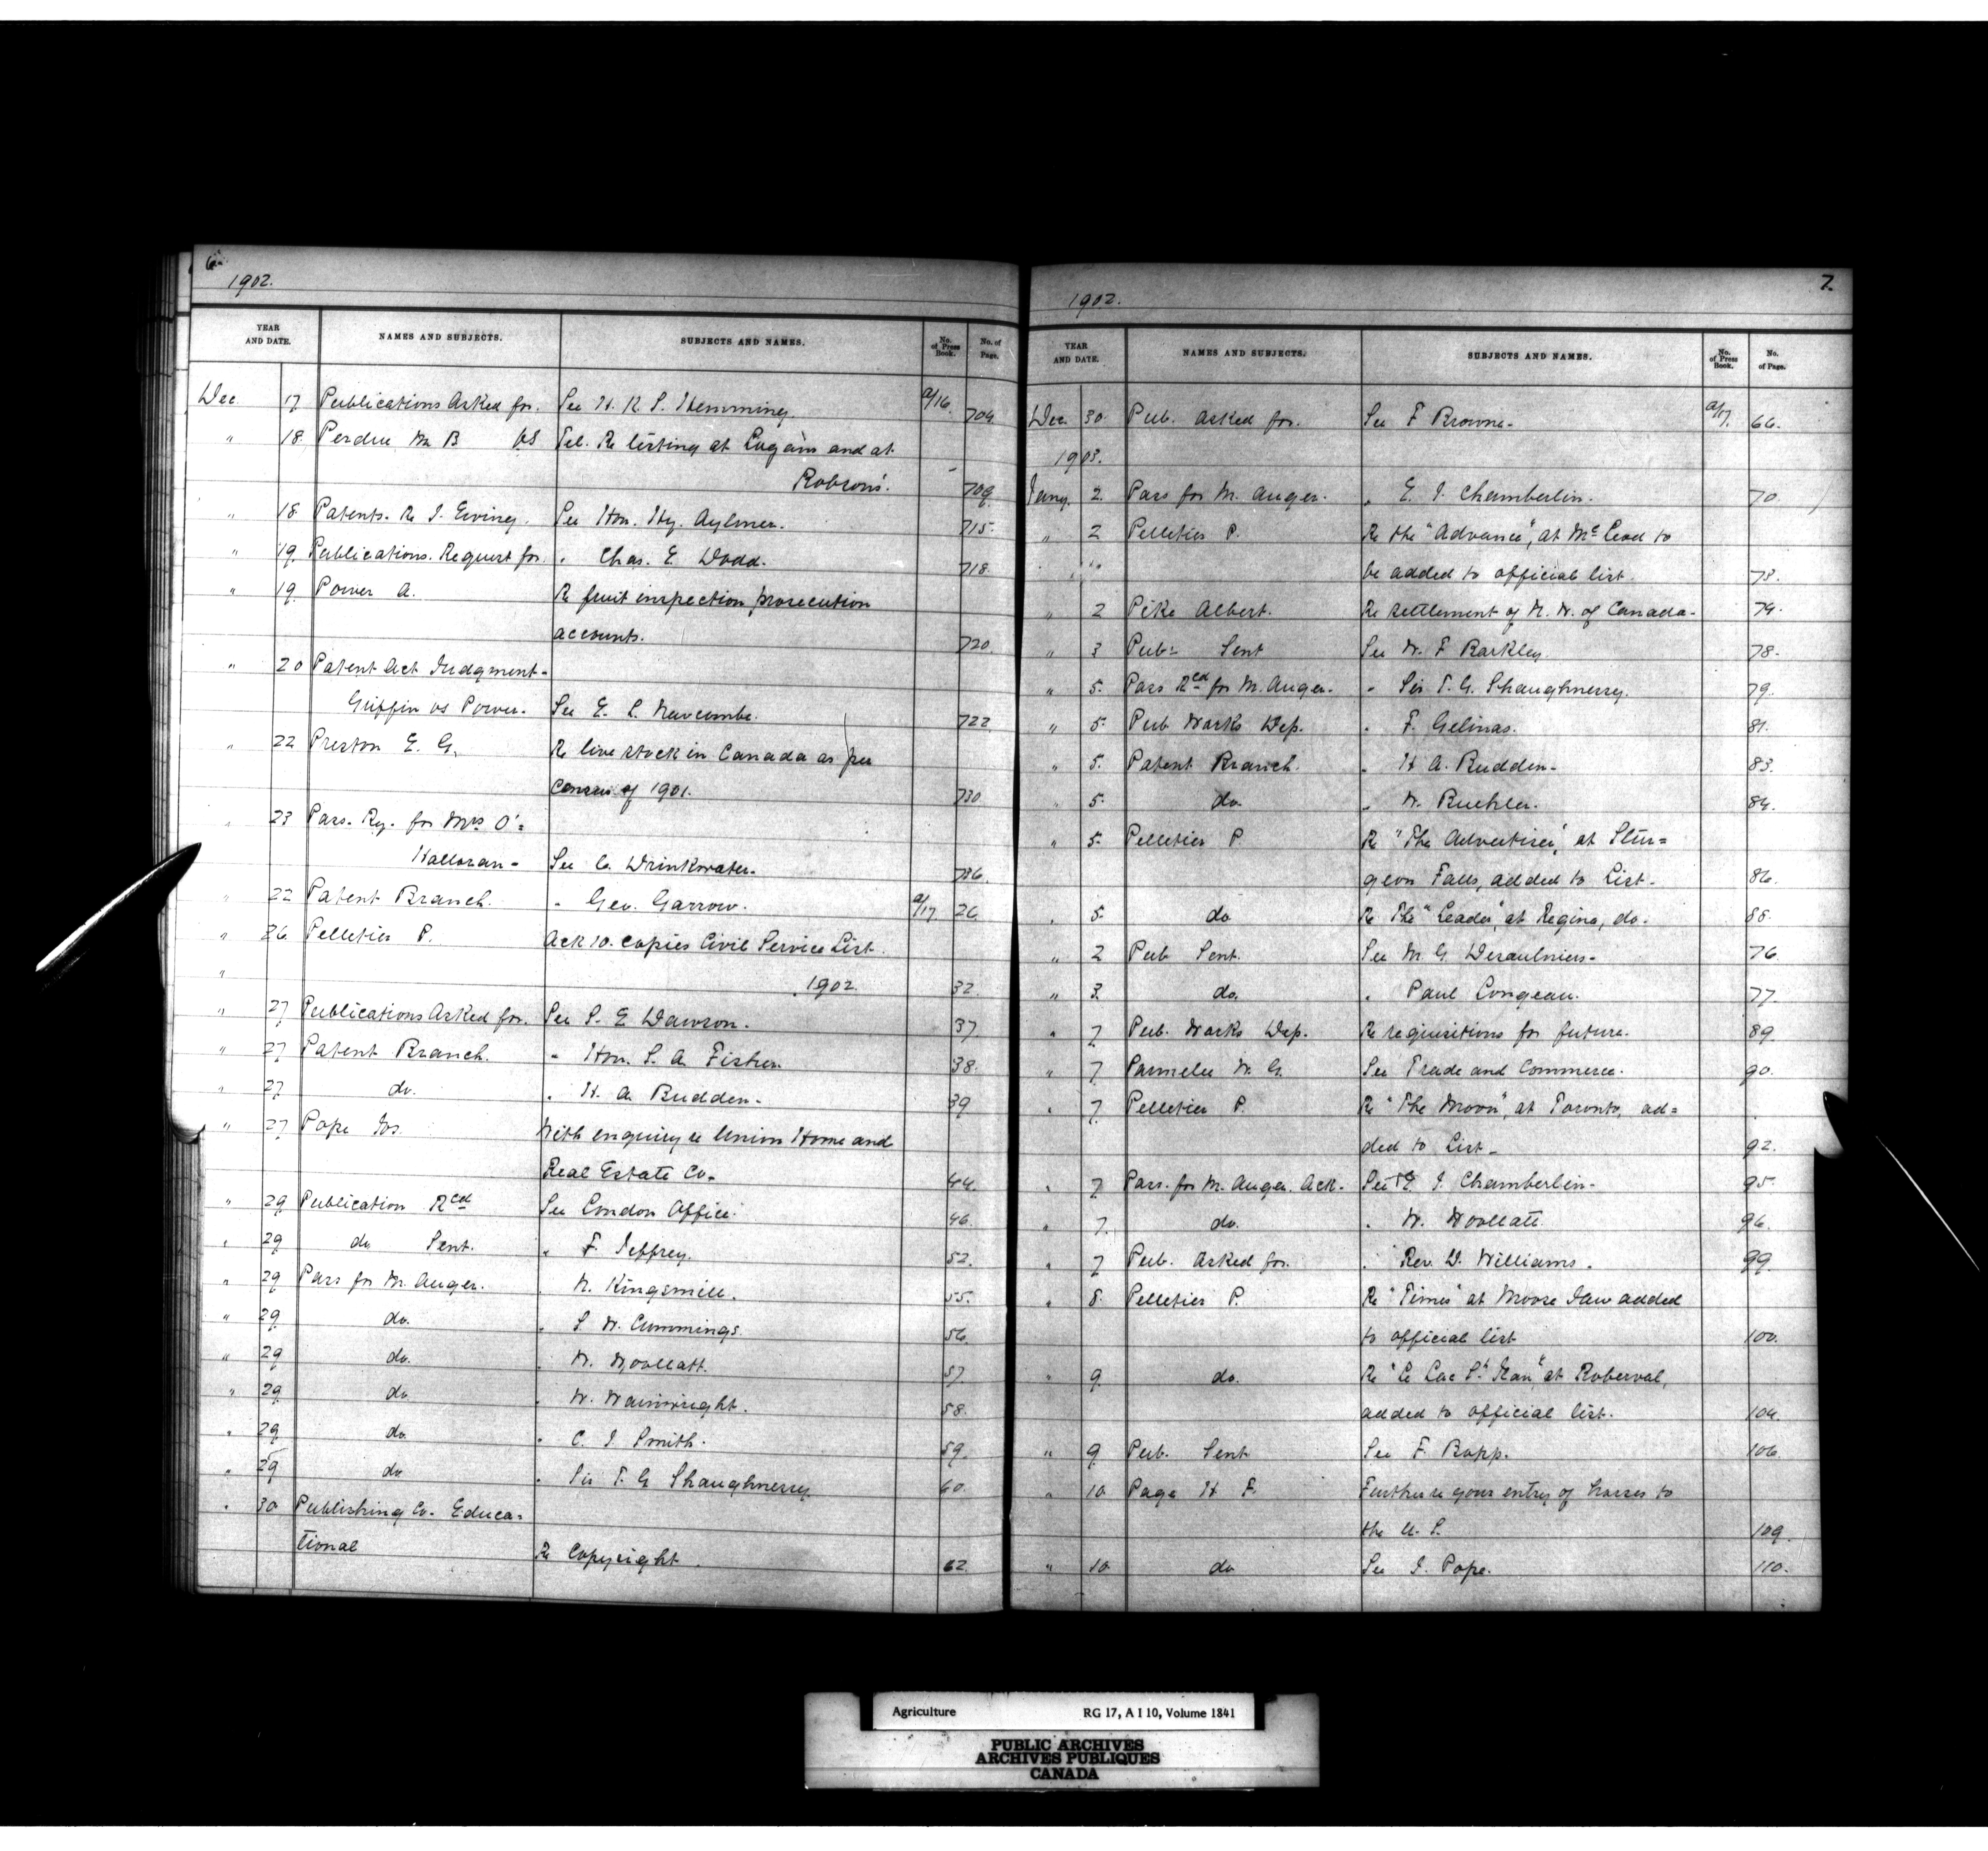 6.
1902.
YEAR AND DATE. NAMES AND SUBJECTS. SUBJECTS AND NAMES. No. of Press Book. No. of Page.
Dec 17 Publications Asked for. See H. R. S. Hemming a/16 704
" 18 Perdue M B VS Tel. Re listing at Lugáin and at
Robsons'. 709
" 18 Patents. Re J. Ewing. See Hon. Hy. Aylmer. 715.
" 19 Publications. Request for " Chas. E. Dodd. 718
" 19 Power A. Re fruit inspection prosecution
accounts. 720
" 20 Patent Act Judgment-
Griffin vs Power. See E. L. Newcombe. 722
" 22 Preston E. G. Re live stock in Canada as per
Census of 1901. 730
" 23 Pass. Ry. for Mrs O'=
Halloran- See C. Drinkwater. 736.
" 22 Patent Branch. " Geo. Garrow. a/17 26
" 26 Pelletier P. Ack 10. copies Civil Service List.
" 1902. 32
" 27 Publications Asked for. See S. E. Dawson. 37
" 27 Patent Branch. " Hon. S. A. Fisher. 38.
" 27 do. " H. A. Budden. 39
" 27 Pope Jos. With enquiry re Union Home and
Real Estate Co. 44
" 29 Publication Rced See London Office. 46
" 29 do Sent. " F. Jeffrey. 52.
" 29 Pass for M. Auger. " N. Kingsmill. 55.
" 29 do. " S. W. Cummings. 56
" 29 do. " W. Woollatt. 57
" 29 do. " W. Wainwright. 58.
" 29 do. " C. J. Smith. 59
" 29 do " Sir T. G Shaughnessy. 60
" 30 Publishing Co. Educa=
tional Re Copyright. 62
7.
1902.
YEAR AND DATE. NAMES AND SUBJECTS. SUBJECTS AND NAMES. No. of Press Book. No. of Page.
Dec. 30 Pub. asked for. See F Browne- a/17. 66.
1903.
Jany. 2 Pass for M. Auger. " E. J. Chamberlin. 70
" 2 Pelletier P. Re the "Advance", at Mc Leod to
" " be added to official list. 73.
" 2 Pike Albert. Re settlement of N. W. of Canada- 74.
" 3 Pubs Sent See W. F Barkley 78.
" 5. Pass Rced for M. Auger. " Sir T. G. Shaughnessy. 79.
" 5. Pub Works Dep. " F. Gelinas. 81.
" 5. Patent Branch. " H A. Budden- 83.
" 5. do. " W. Buehler. 84.
" 5. Pelletier P. Re "The Advertiser", at Stur=
geon Falls, added to List. 86.
" 5. do Re The "Leader", at Regina, do. 88.
" 2 Pub Sent. See M. G. Desaulniers- 76
" 3 do. " Paul Congeau. 77
" 7 Pub. Works Dep. Re requisitions for future. 89.
" 7 Parmelee W. G. See Trade and Commerce. 90.
" 7 Pelletier P. Re "The Moon", at Toronto, ad=
ded to List- 92.
" 7 Pass. for M. Auger. Ack. See E. J. Chamberlin- 95.
" 7. do. " W. Woollatt. 96.
" 7 Pub. Asked for. " Rev. D. Williams. 99.
" 8. Pelletier P. Re "Times" at Moose Jaw added
to official list 100.
" 9 do. Re "Le Lac St. Jean", at Roberval,
added to official list. 104.
" 9 Pub. Sent See F. Bopp. 106.
" 10 Page H F. Further re your entry of horses to
the U. S. 109
" 10 do See J. Pope. 110.
Agriculture RG 17, A I 10, Volume 1841
PUBLIC ARCHIVES
ARCHIVES PUBLIQUES
CANADA